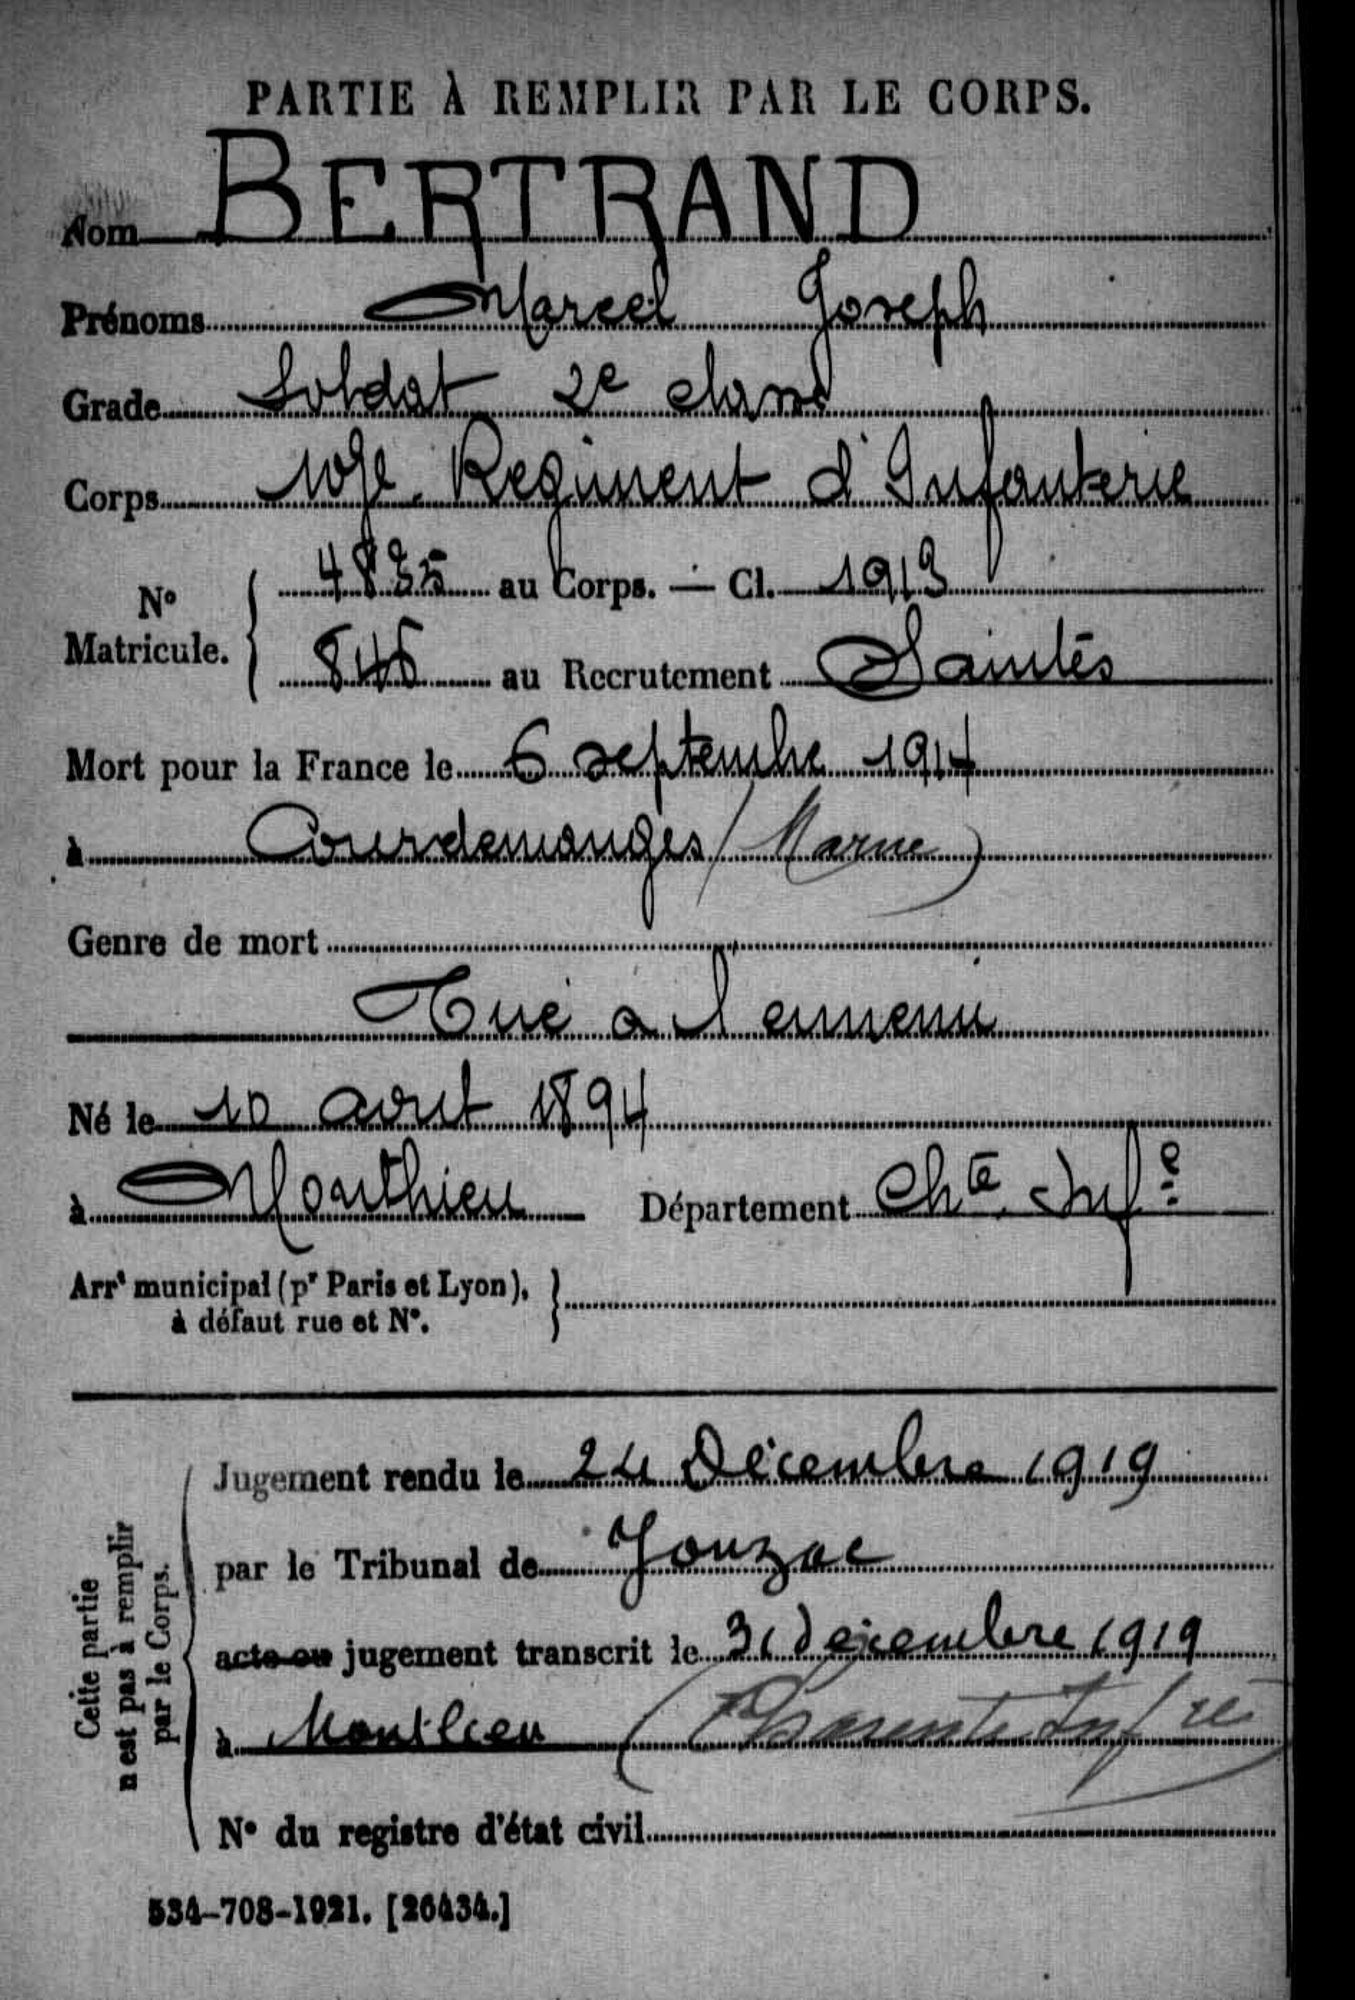 PARTIE À REMPLIR PAR LE CORPS.
Nom BERTRAND
Prénoms Marcel Joseph
Grade Soldat 2e classe
Corps Régiment d'Infanterie
N° Matricule. 4835 au Corps. — Cl. 1913
846 au Recrutement Saintes
Mort pour la France le 6 septembre 1914
à Courdemanges (Marne)
Genre de mort
Tué à l'ennemi
Né le 10 avril 1894
à Département Chte Infe
Arrt municipal (pr Paris et Lyon),
à défaut rue et N°.
Cette partie
n'est pas à remplir
par le Corps.
Jugement rendu le 24 Décembre 1919
par le Tribunal de Jonzac
acte ou jugement transcrit le 31 décembre 1919
à Montlieu (Charente Infre)
N° du registre d'état civil
534-708-1921. [26434.]